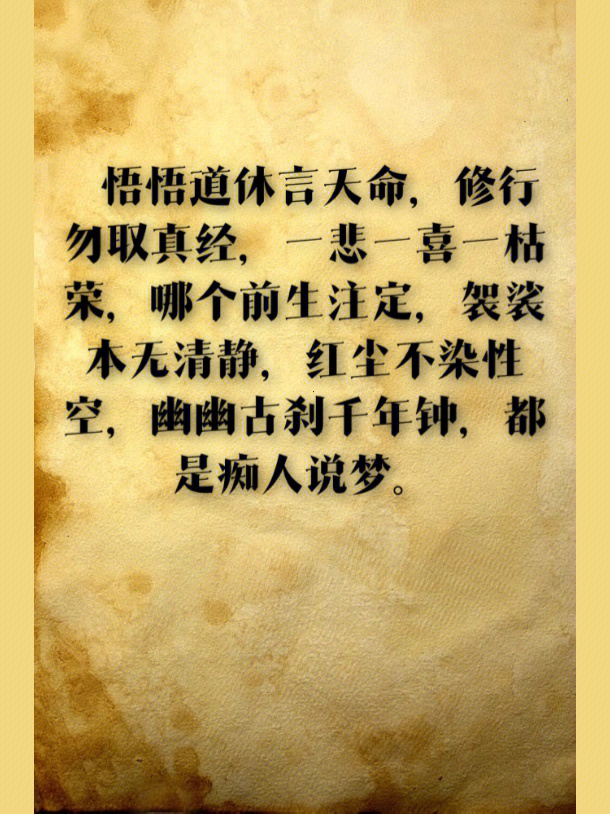 悟悟道休言天命，修行
勿取真经，一悲一喜一枯
荣，哪个前生注定，袈裟
本无清静，红尘不染性
空，幽幽古刹千年钟，都
是痴人说梦。